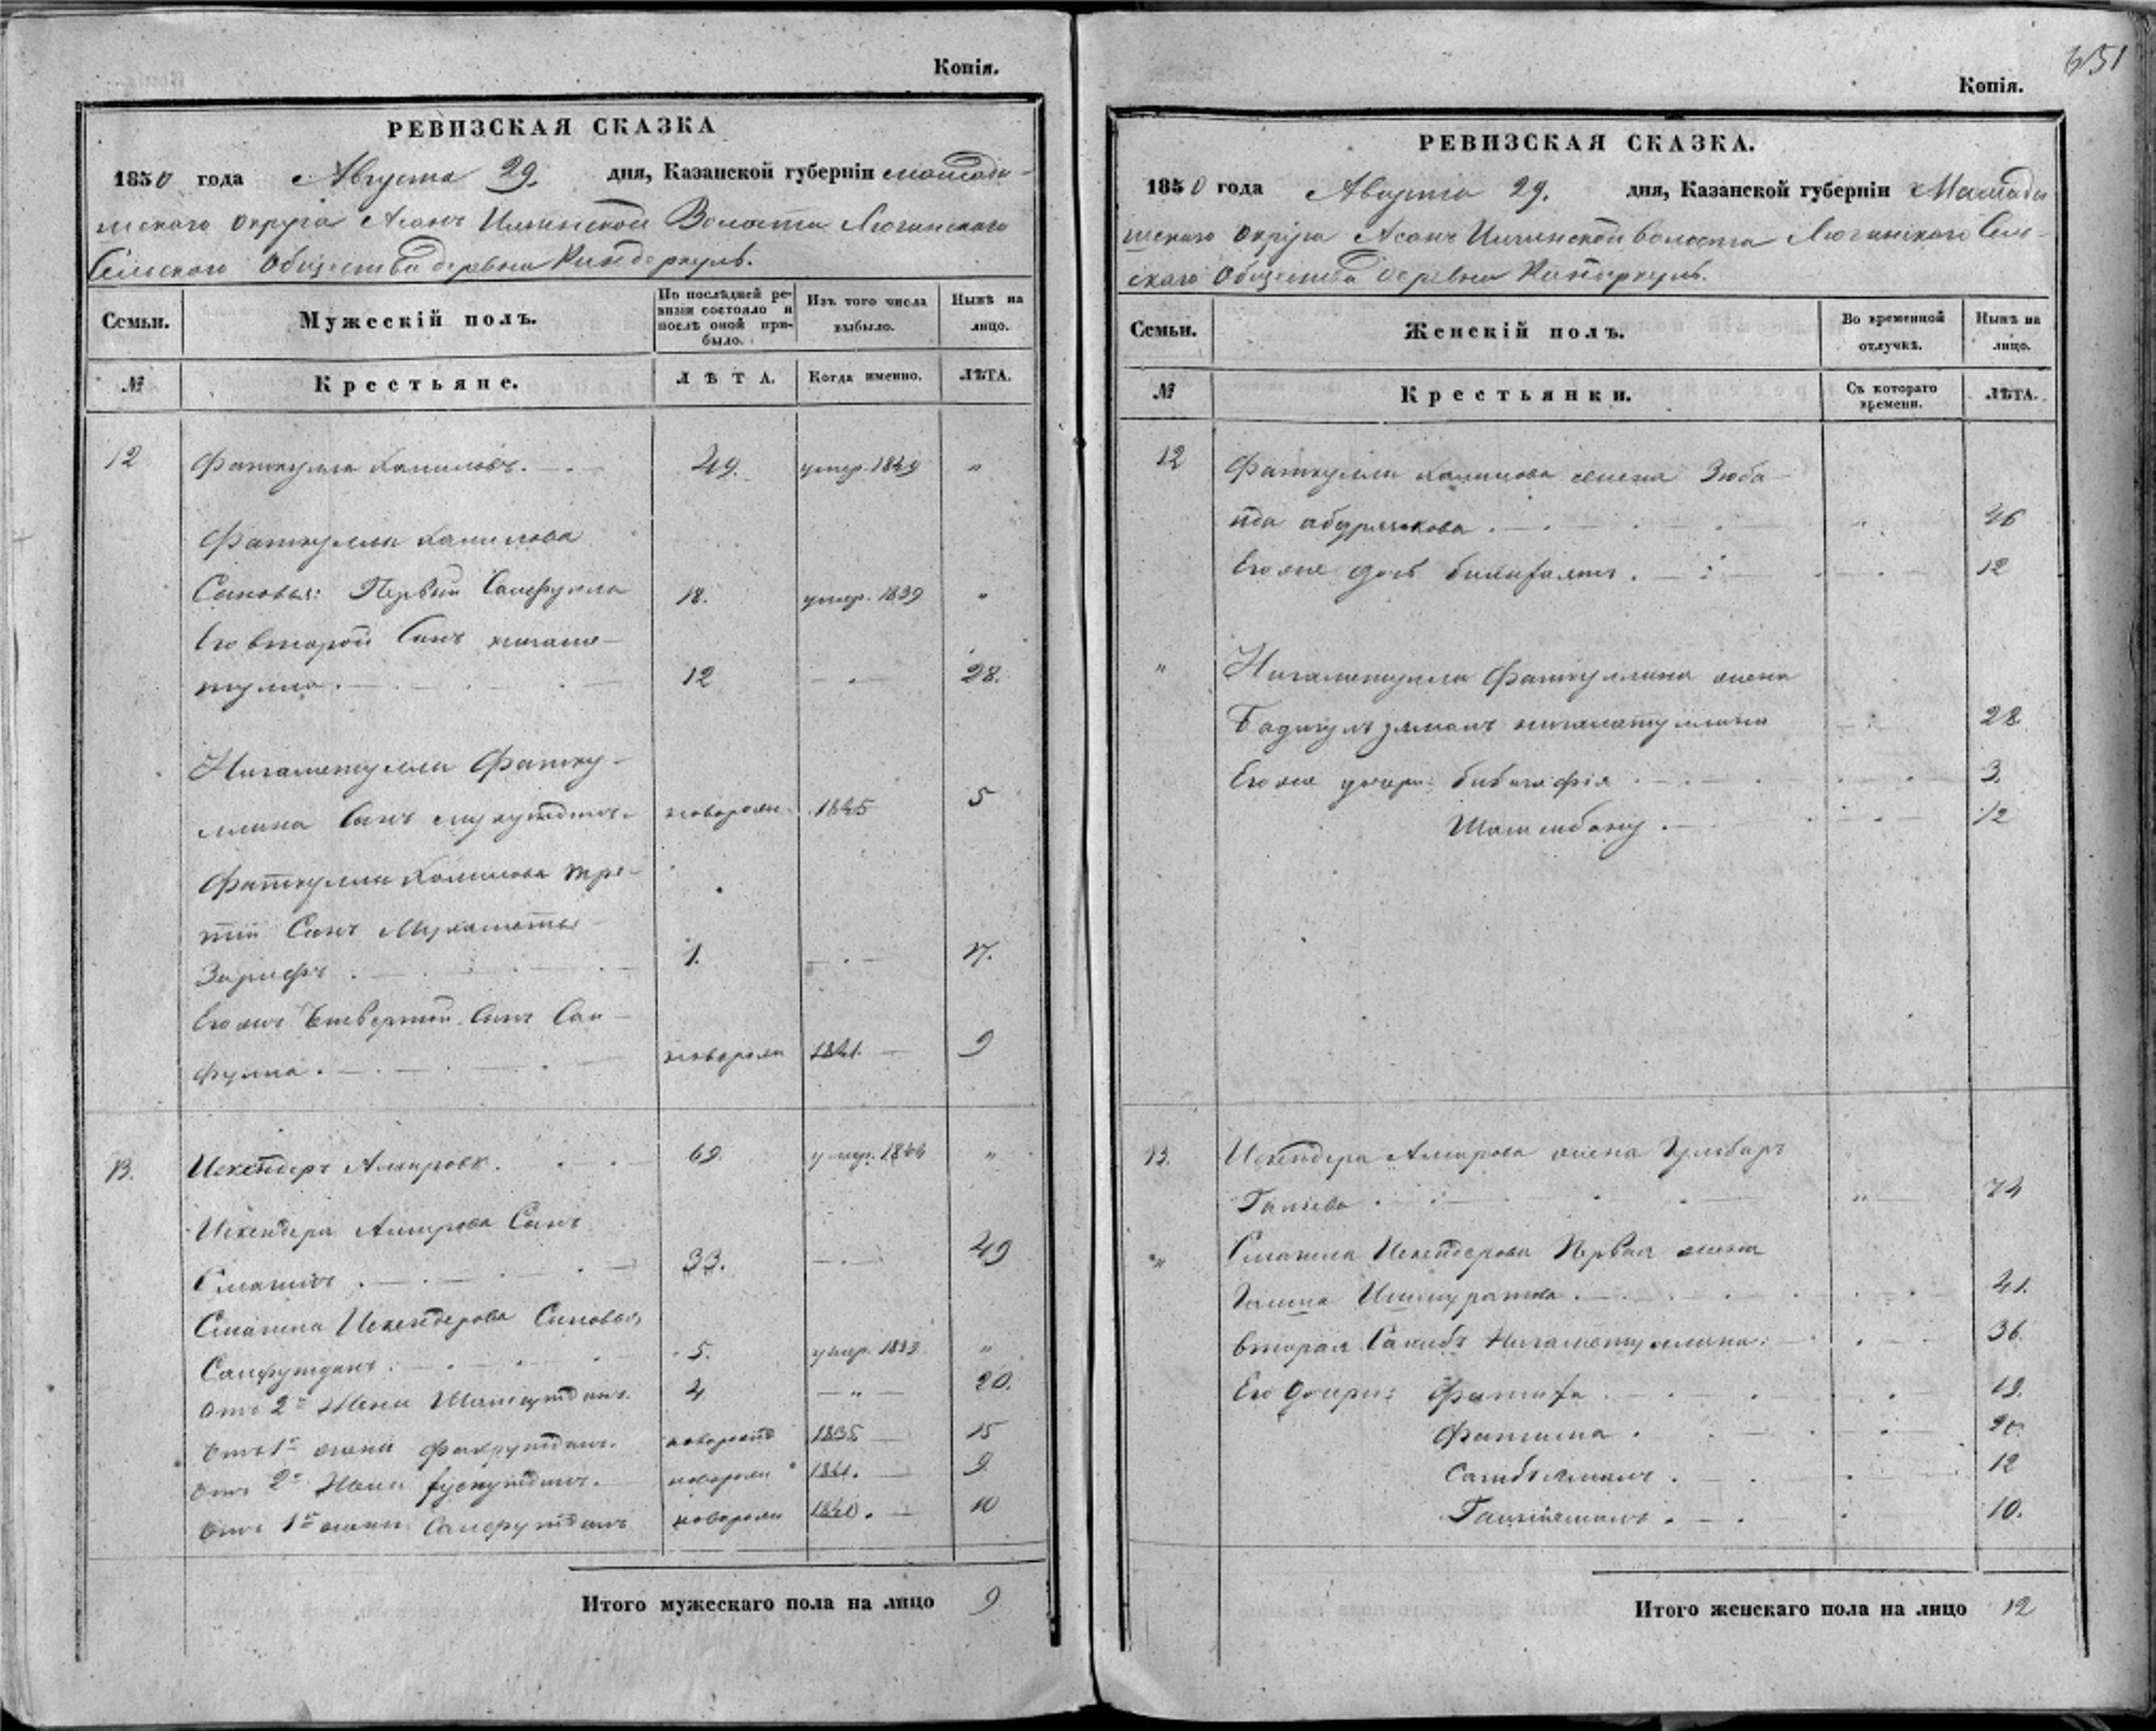 Копія.
РЕВИЗСКАЯ СКАЗКА
1850 года Августа 29. дня, Казанской губерніи Мамады-
шскаго округа Асанъ Илгинской Волости Лючинскаго
Сельского Общества деревни Киндеркуль.
Семьи.
Мужескій полъ.
По послѣдней ре-
визіи состояло и
послѣ оной при-
было.
Изъ того числа
выбыло.
Нынѣ на
лицо.
№
Крестьяне.
ЛѢТА.
Когда именно.
ЛѢТА.
12 Фаткулла Халиловъ. 49. умер. 1849 "
Фаткуллы Халилова
Сыновья: Первый Сайфулла 18. умер. 1839 "
Его второй Сынъ нигаме-
тулла. 12 28.
Нигаметуллы Фатку-
ллина Сынъ новорож. 1845 5
Фаткуллы Халилова тре-
тій Сынъ Мухаметъ
Зарифъ 1. 17.
Его же Четвертый Сынъ Сай-
фулла. новорож 1841. 9
13. Искендеръ Амировъ. 69. умер. 1844 "
Искендера Амирова Сынъ
Смагилъ. 33. 49
Смагила Искендерова Сыновья
Сайфутдинъ. 5. умер. 1839 "
отъ 2й Жены Шамсутдинъ. 4 " 20.
отъ 1й жены Фахрутдинъ. новорожд 1835 15
отъ 2й Жены новорож 1841. 9
отъ 1й жены Сайфутдинъ новорож 1840. 10
Итого мужескаго пола на лицо 9
651
Копія.
РЕВИЗСКАЯ СКАЗКА.
1850 года Августа 29. дня, Казанской губерніи Мамады
шскаго округа Асанъ Илгинской волости Лючинскаго Сель-
скаго Общества деревни Киндеркуль.
Семьи.
Женскій полъ.
Во временной
отлучкѣ.
Нынѣ на
лицо.
№
Крестьянки.
Съ котораго
времени.
ЛѢТА.
12 Фаткуллы Халилова жена Зюба-
ида " 46
Его же дочь 12
" Нигаметуллы Фаткуллина жена
нигаметуллина 28
Его же дочери: 3.
12
13. Искендера Амирова жена Гульбаръ
" 74
" Смагила Искендерова Первая жена
41.
вторая Нигаметуллина: 36.
Его дочери: 19.
Фатима. 20.
12
10.
Итого женскаго пола на лицо 12